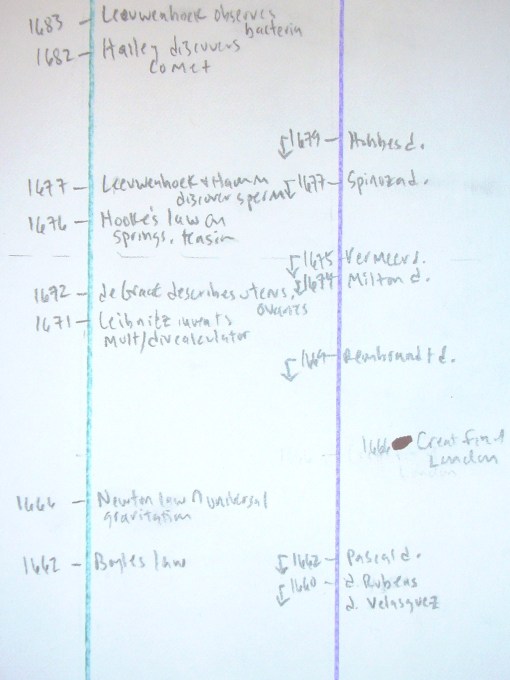 1683 Leeuwenhoek observes
bacteria
1682 Halley discovers
comet
1679 Hobbes d.
1677 Leeuwenhoek + Hamm
discover sperm
1677 Spinoza d.
1676 Hooke's law on
springs, tension
1675 Vermeer d.
1674 Milton d.
1672 de Graaf describes uterus,
ovaries
1671 Leibnitz invents
mult/div calculator
1669 Rembrandt d.
1666 Great fire of
London
London
1666 Newton law universal
gravitation
1662 Boyles law
1662 Pascal d.
1660 d. Rubens
d. Velasquez